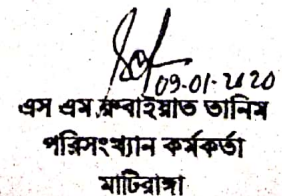 09-01-2020
এস এম রুবাইয়াত তানিম
পরিসংখ্যান কর্মকর্তা
মাটিরাঙ্গা